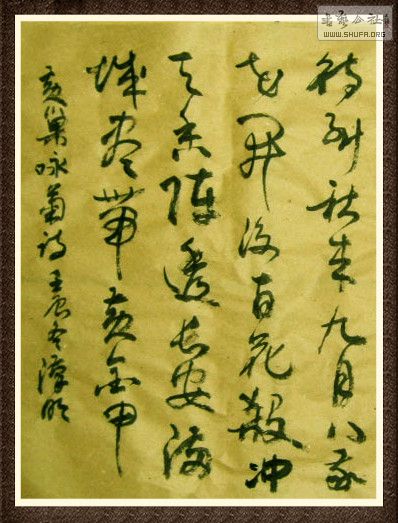 書藝公社
WWW.SHUFA.ORG
待到秋来九月八我
花開後百花殺冲
天香陣透長安滿
城盡帶黃金甲
黃巢咏菊詩 壬辰冬